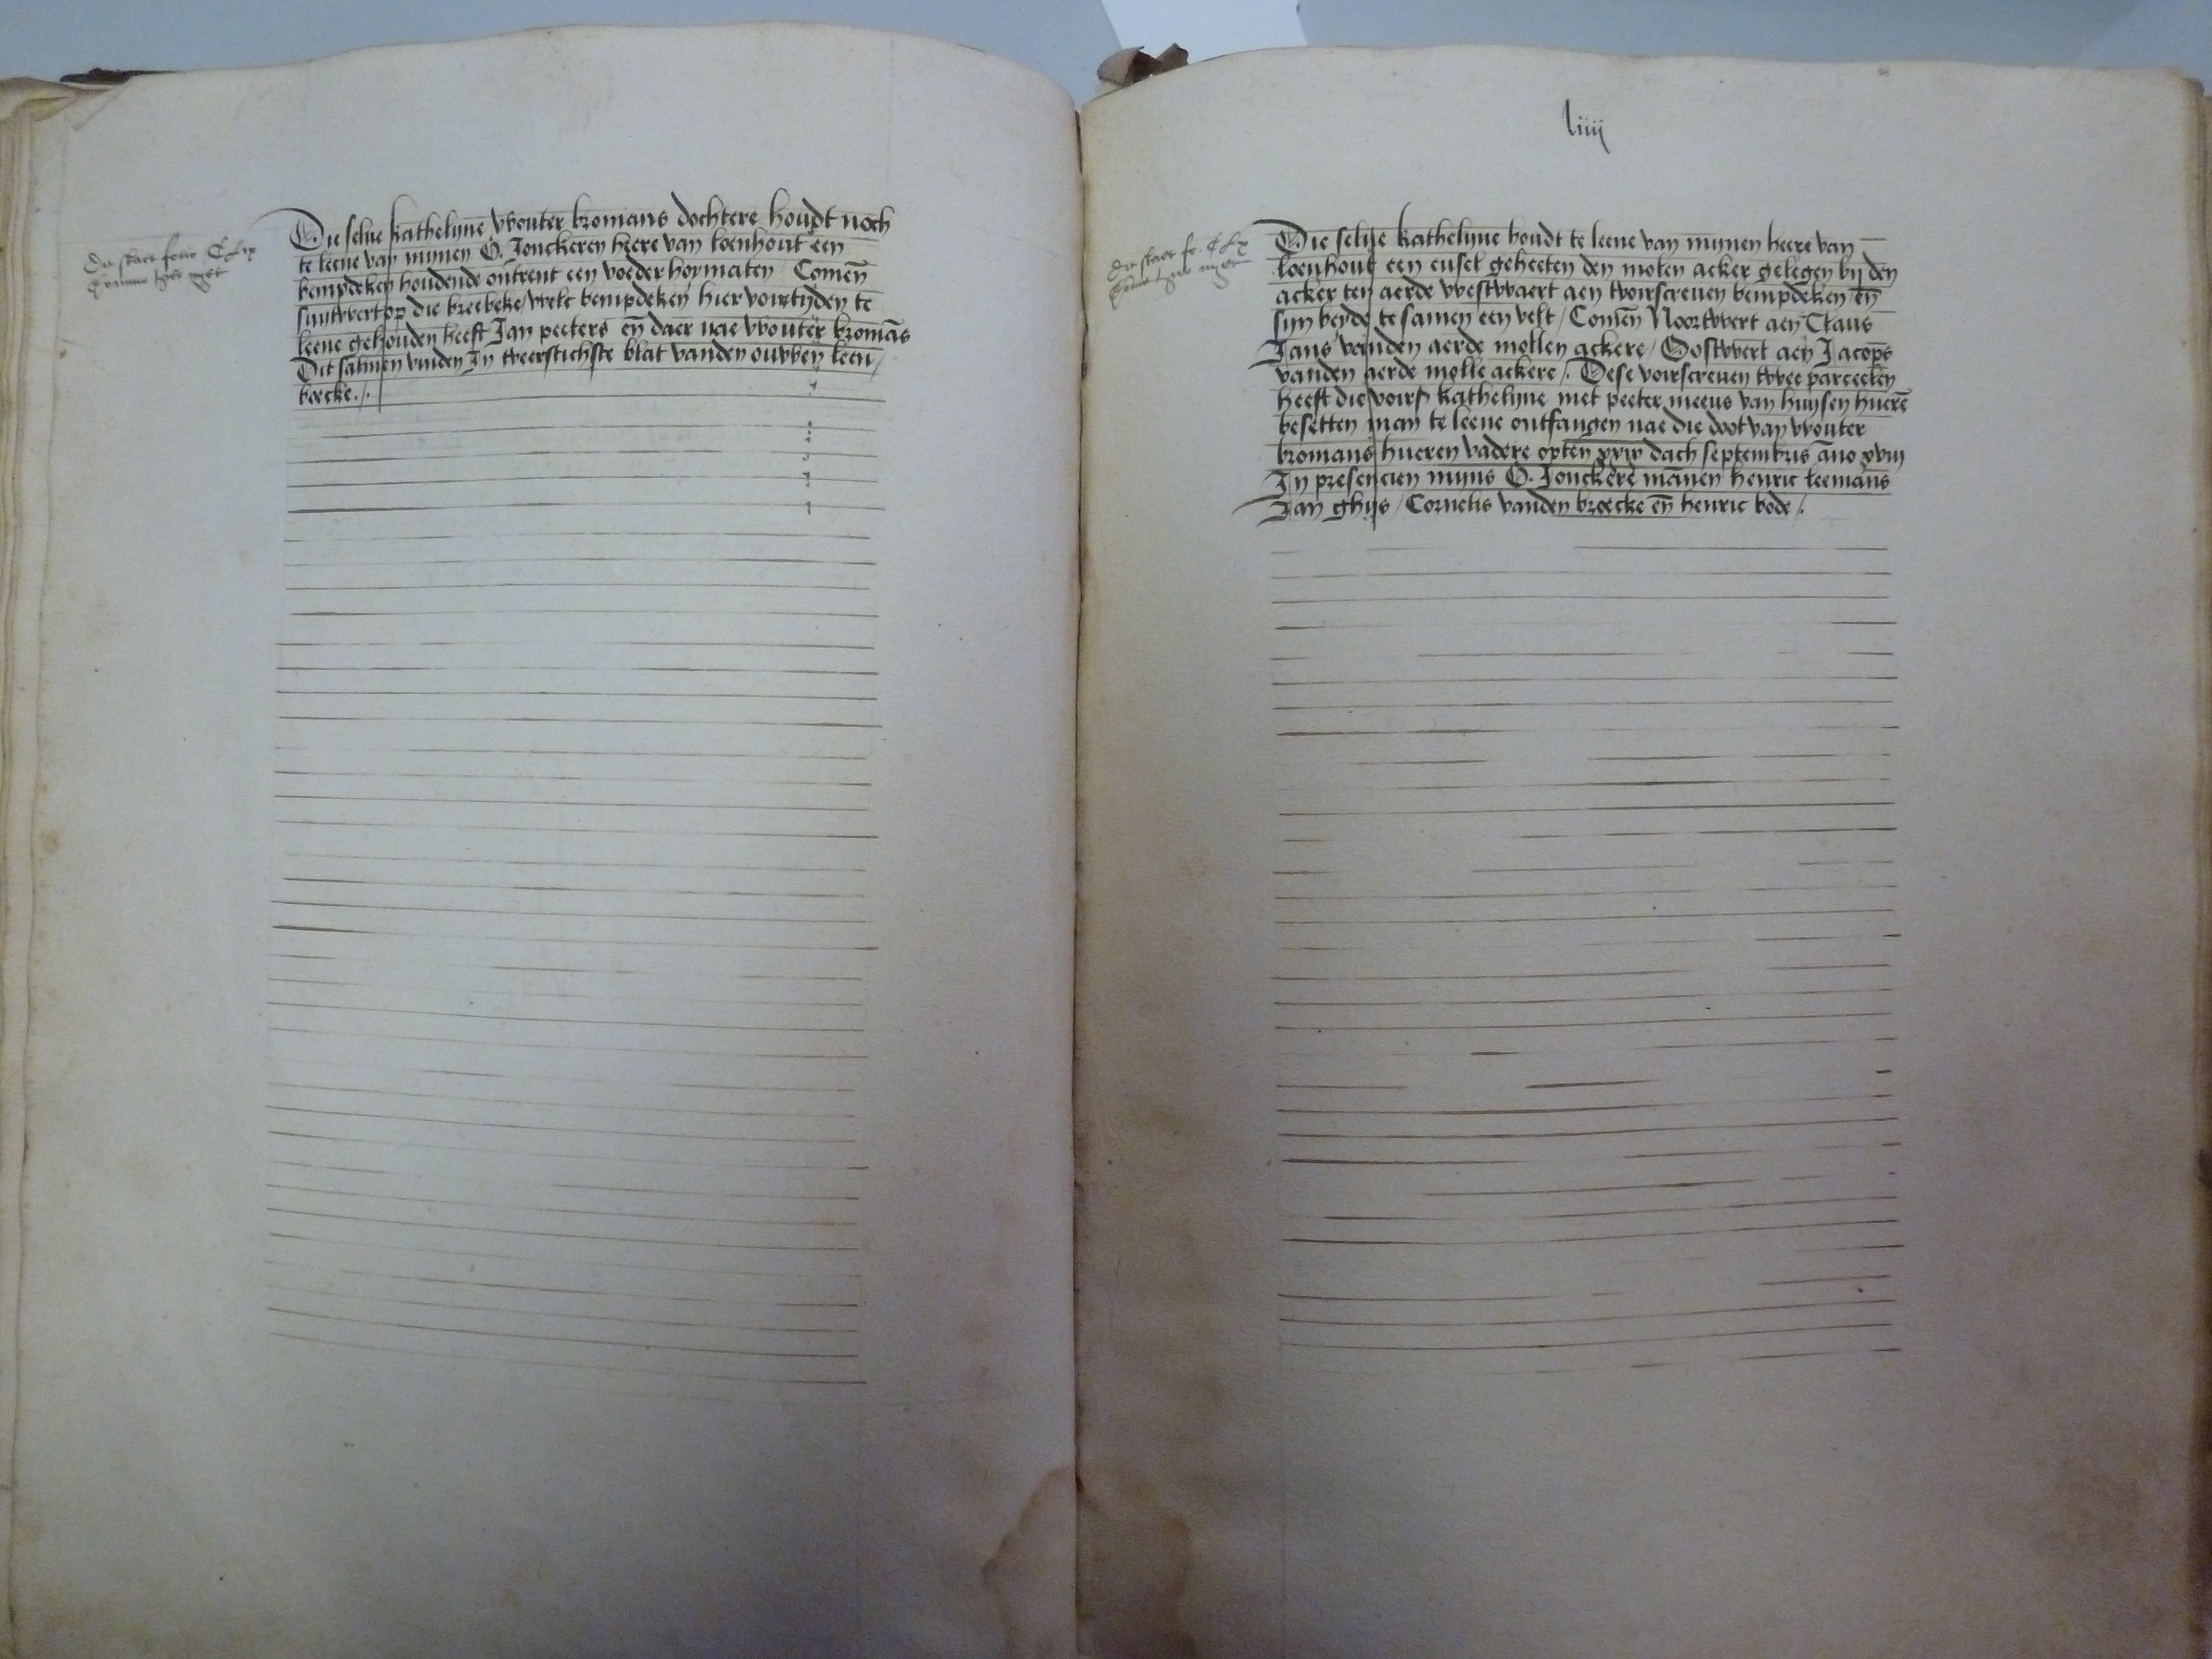 Die selue kathelijne wouter bromans dochtere houdt noch
te leene van mijnen G. Jonckeren heere van loenhout een
bempdeken houdende ontrent een voeder hoymaten / Comen̄
suutwert op die breebeke / welc bempdeken hier voirtijden te
leene gehouden heeft Jan peeters en̄ daer nae wouter bromās
Dit salmen vinden In tveerstichste blat vanden ouwen leen /
boecke ./.
Dit staet folio CLix
liiij
Die selue kathelijne houdt te leene van mijnen heere van
loenhout een eusel geheeten den molen acker gelegen bij den
acker ten aerde westwaert aen tvoirscreuen bempdeken / en̄
sijn beyde te samen een velt / Comen̄ Noortwert aen Claus
Jans vanden aerde mollen ackere / Oostwert aen Jacops
vanden aerde molle ackere /. Dese voirscreuen twee parceelen
heeft die voirs kathelijne met peeter meeus van huysen hueren̄
besetten man te leene ontfangen nae die doot van wouter
bromans hueren vadere opten dach septembris āno xviij
In presencien mijns G. Jonckere mānen henric leemans
Jan ghijs / Cornelis vanden broecke en̄ henric bode /.
Dit staet fo. CLx